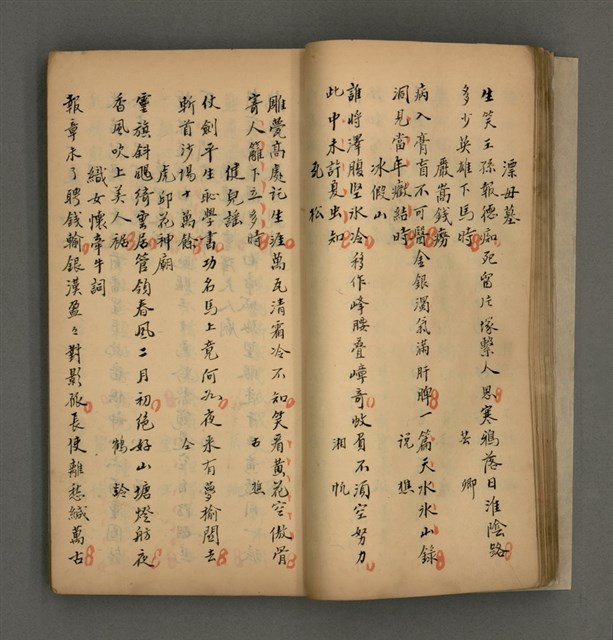 漂母墓
生笑王孫報德痴死留片塚繫人思寒鴉落日淮陰路
多少英雄下馬時 芸卿
嚴嵩錢癆
病入膏肓不可醫金銀濁氣滿肝脾一篇天水冰山錄
洞見當年癥結時 說樵
冰假山
誰將澤腹堅冰冷移作峰腰疊嶂奇岐負不須空努力
此中未許夏虫知 湘帆
瓦松
雕甍高處託生涯萬瓦清霜冷不知笑看黃花空傲骨
寄人籬下五多時 古樵
健兒謠
仗劍平生恥學書功名馬上竟何如夜來有夢榆關去
斬首沙場十萬餘 仝
虎邱花神廟
靈旗斜颺綺雲居管鈞春風二月初絕好山塘燈舫夜
香風吹上美人裾 鶴齡
織女懷牽牛詞
報章未了聘錢輸銀漢盈々對影孤長使離愁緘萬古